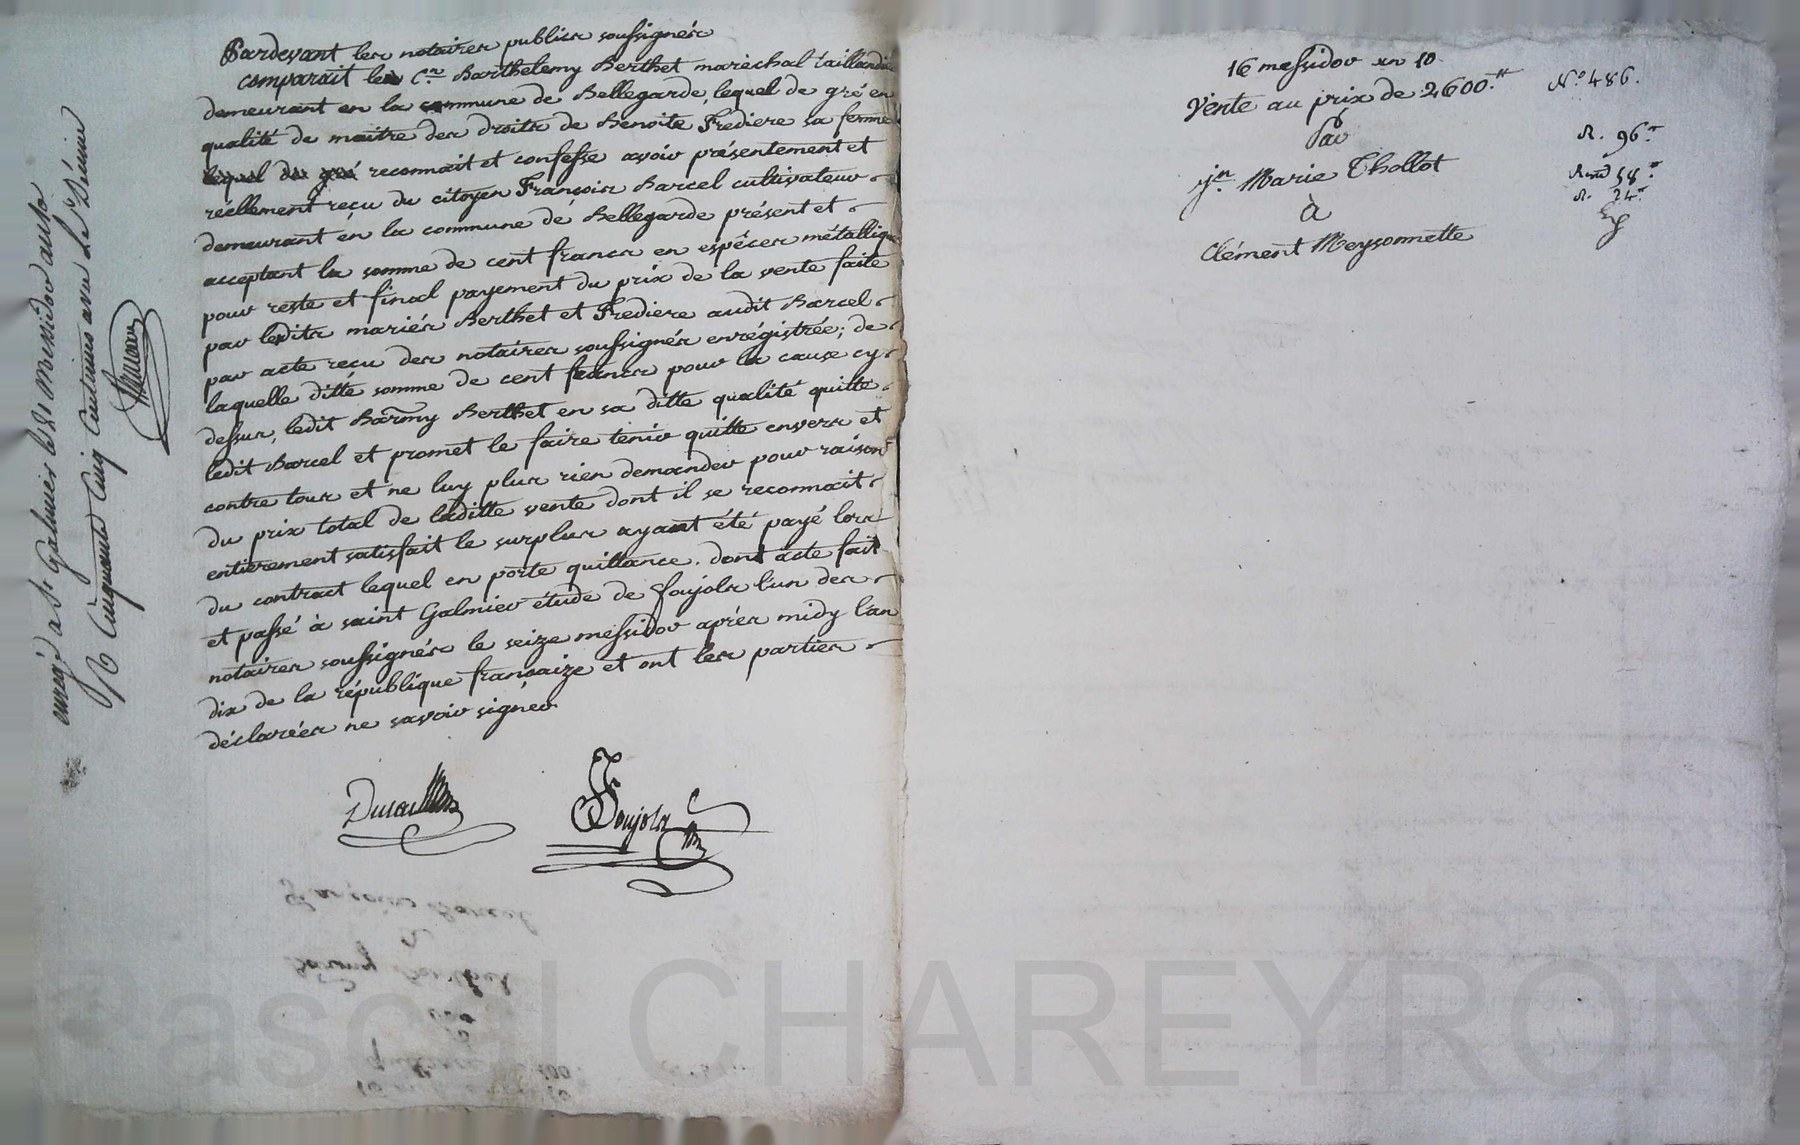 Pardevant les notaires publics soussignés
comparait le Cen Barthelemy Berthet maréchal taillandier
demeurant en la commune de Bellegarde, lequel de gré en
qualité de maitre des droits de Benoite Frediere sa femme
lequel de gré reconnait et confesse avoir présentement et
réellement reçu du citoyen François Barcel cultivateur
demeurant en la commune de Bellegarde présent et
acceptant la somme de cent francs en espéces métallique
pour reste et final payement du prix de la vente faite
par ledits mariés Berthet et Frediere audit Barcel
par acte reçu des notaires soussignés enrégistrée; de
laquelle ditte somme de cent francs pour la cause cy
dessus, ledit Barmy Berthet en sa ditte qualité quitte
ledit Barcel et promet le faire tenir quitte envers et
contre tous et ne luy plus rien demander pour raison
du prix total de laditte vente dont il se reconnait
entièrement satisfait le surplus ayant été payé lors
du contract lequel en porte quittance. dont acte fait
et passé à saint Galmier étude de foujols l'un des
notaires soussignés le seize messidor après midy l'an
dix de la république françaize et ont les parties
déclarées ne savoir signer
Foujols
enregé a St Galmier le 21 Messidor an 10
R Cinquante Cinq Centimes avec le Décime
François Barcel
à
Barmy Berthet
par
quittance 100
16 messidor an 10
16 messidor an 10
Vente au prix de 2600.tt
Par
Jn. Marie Thollot
à
Clément Meysonnette
N.o 486.
R. 96
58
R. 24
Pascal CHAREYRON